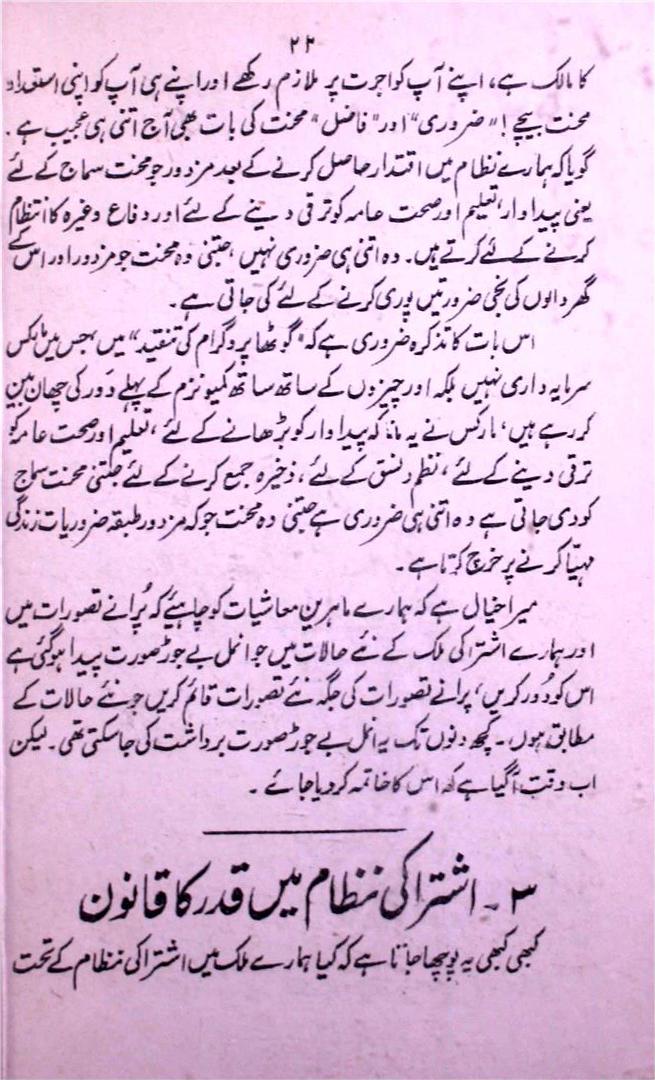 ۲۲
کا مالک ہے، اپنے آپ کو اجرت پر ملازم رکھے اور اپنے ہی آپ کو اپنی استعداد
محنت بیچے! "ضروری" اور "فاضل" محنت کی بات بھی آج اتنی ہی عجیب ہے۔
گویا کہ ہمارے نظام میں اقتدار حاصل کرنے کے بعد مزدور جو محنت سماج کے لئے
یعنی پیداوار، تعلیم اور صحت عامہ کو ترقی دینے کے لئے اور دفاع وغیرہ کا انتظام
کرنے کے لئے کرتے ہیں۔ وہ اتنی ہی ضروری نہیں، جتنی وہ محنت جو مزدور اور اس کے
گھر والوں کی نجی ضرورتیں پوری کرنے کے لئے کی جاتی ہے۔
اس بات کا تذکرہ ضروری ہے کہ "گوتھا پروگرام کی تنقید" میں، جس میں مارکس
سرمایہ داری نہیں بلکہ اور چیزوں کے ساتھ ساتھ کمیونزم کے پہلے دَور کی چھان بین
کر رہے ہیں، مارکس نے یہ مانا کہ پیداوار کو بڑھانے کے لئے، تعلیم اور صحت عامہ کو
ترقی دینے کے لئے، نظم و نسق کے لئے، ذخیرہ جمع کرنے کے لئے جتنی محنت سماج
کو دی جاتی ہے وہ اتنی ہی ضروری ہے جتنی وہ محنت جو کہ مزدور طبقہ ضروریات زندگی
مہیّا کرنے پر خرچ کرتا ہے۔
میرا خیال ہے کہ ہمارے ماہرین معاشیات کو چاہیئے کہ پُرانے تصورات میں
اور ہمارے اشتراکی ملک کے نئے حالات میں جو انمل بے جوڑ صورت پیدا ہو گئی ہے
اس کو دُور کریں، پرانے تصورات کی جگہ نئے تصورات قائم کریں جو نئے حالات کے
مطابق ہوں۔ کچھ دنوں تک یہ انمل بے جوڑ صورت برداشت کی جا سکتی تھی۔ لیکن
اب وقت آگیا ہے کہ اس کا خاتمہ کر دیا جائے۔
۳۔ اشتراکی نظام میں قدر کا قانون
کبھی کبھی یہ پوچھا جاتا ہے کہ کیا ہمارے ملک میں اشتراکی نظام کے تحت